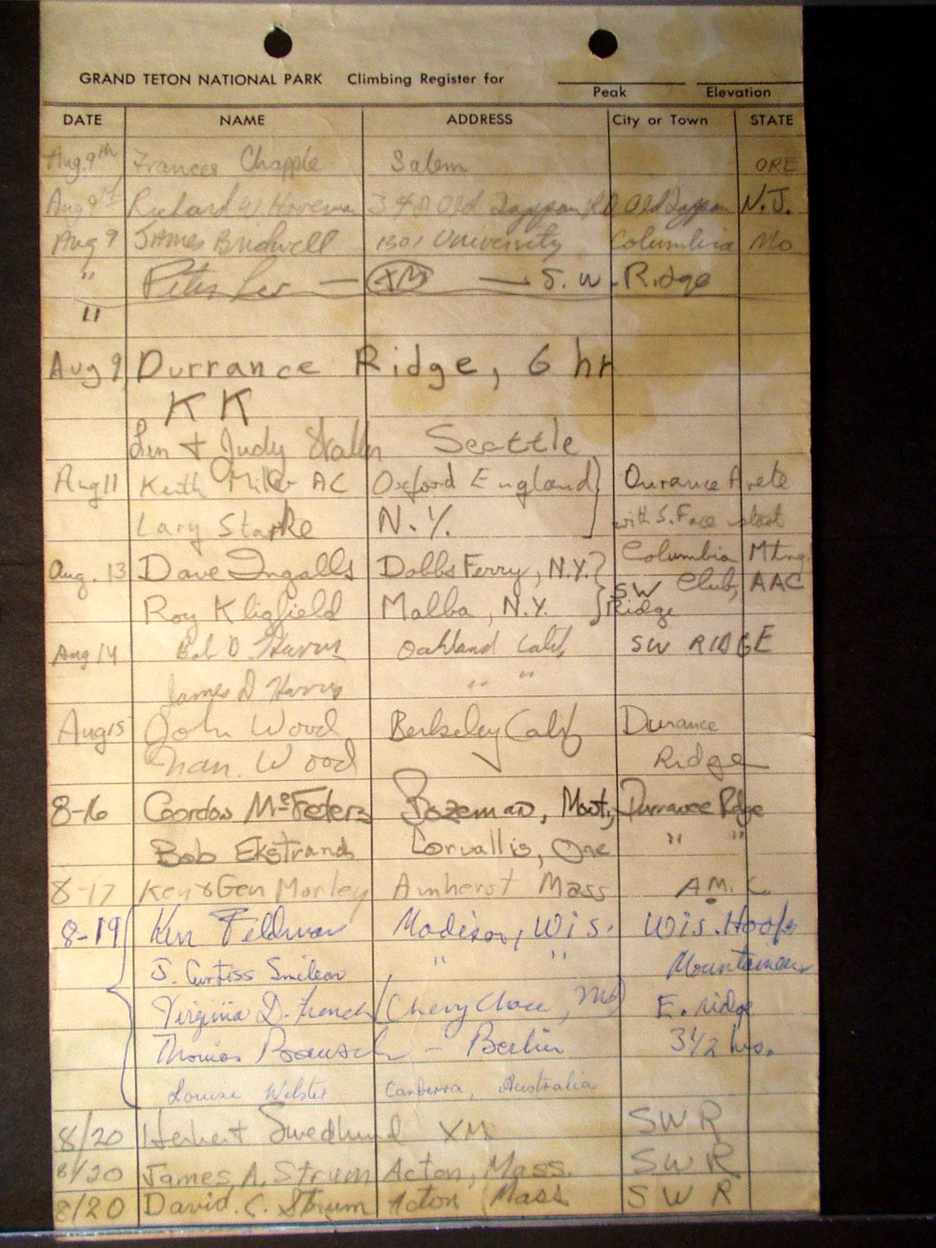 GRAND TETON NATIONAL PARK Climbing Register for
Peak Elevation
DATE NAME ADDRESS City or Town STATE
Aug. 9th Frances Chapple Salem ORE
Aug 9th Richard W 340 Old Tappan RD Old Tappan N.J.
Aug 9 James Bridwell 1301 University Columbia Mo
" Peter Lev — XM — S.W. Ridge
"
Aug 9 Durrance Ridge, 6 hr
KK
Len + Judy Seattle
Aug 11 Keith Miller AC Oxford England Durance Arete
Lary Starke N.Y. with S. Face start
Columbia Mtng
Aug. 13 Dave Ingalls Dobbs Ferry, N.Y. Club, AAC
Roy Kligfield Malba, N.Y. SW Ridge
Aug 14 Bob D Harris Oakland Calif. SW RIDGE
James D Harris " "
Aug 15 John Wood Berkeley Calif Durance
Nan. Wood Ridge
8-16 Gordon McFeters Bozeman, Mont, Durrance Rdge
Bob Ekstrand Corvallis, Ore " "
8-17 Ken & Gen Morley Amherst Mass A.M.C.
8-19 Ken Feldman Madison, Wis. Wis. Hoofs
J. Curtiss " " Mountaineers
Virginia D. French (Chevy Chase, Md) E. ridge
Thomas – Berlin 3 1/2 hrs.
Louise Webster Canberra, Australia
8/20 Herbert Swedlund XM SWR
8/20 James A. Strum Acton, Mass. SWR
8/20 David C. Strum Acton Mass SWR